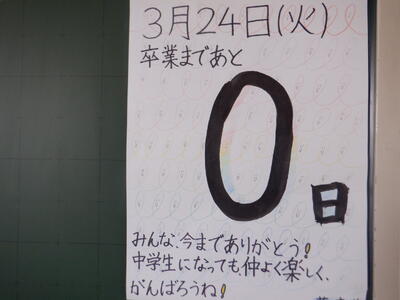 3月24日(火)
卒業まであと
0日
みんな、今までありがとう!
中学生になっても仲よく楽しく、
がんばろうね!